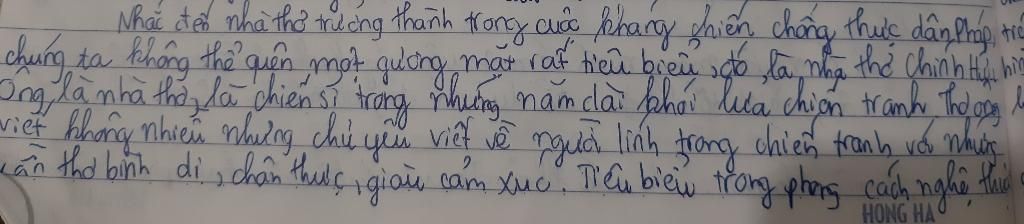 Nhắc đến nhà thơ trưởng thành trong cuộc kháng chiến chống thực dân Pháp,
chúng ta không thể quên một gương mặt rất tiêu biểu, đó là nhà thơ Chính Hữu
Ông là nhà thơ, là chiến sĩ trong những năm dài khói lửa chiến tranh. Thơ ông
viết không nhiều nhưng chủ yếu viết về người lính trong chiến tranh với những
vần thơ bình dị, chân thực, giàu cảm xúc. Tiêu biểu trong phong cách nghệ thuật
HONG HA